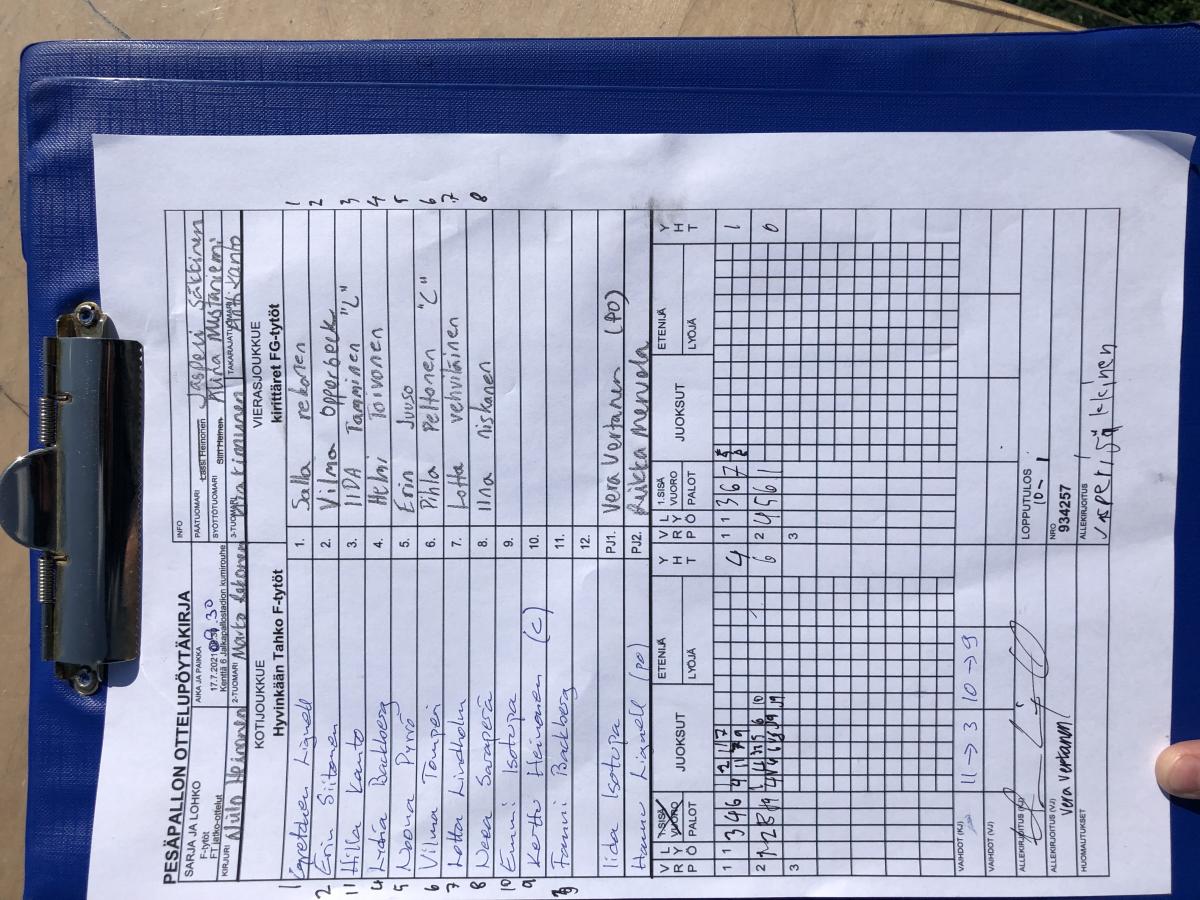 PESÄPALLON OTTELUPÖYTÄKIRJA
SARJA JA LOHKO
F-tytöt
FT jatko-ottelut
AIKA JA PAIKKA
17.7.2021 09.30
Kenttä 6 Jalkapallostadion kumirouhe
INFO
PÄÄTUOMARI Lassi Heinonen Jasperi Säkkinen
SYÖTTÖTUOMARI Siiri Heinen Niina Mustaniemi
KIRJURI Niilo Heinonen
2-TUOMARI Marko Rekonen
3-TUOMARI
TAKARAJATUOMARI
KOTIJOUKKUE
Hyvinkään Tahko F-tytöt
VIERASJOUKKUE
kirittäret FG-tytöt
1 Gretchen Lignell
2 Erin Siitonen
11 Hilla Kanto
4 Lidia Backberg
5 Noona Pyrrö
6 Vilma Tomperi
7 Lotta Lindholm
8 Neea Saraperä
10 Emmi Isotupa
9 Kerttu Heinonen (C)
Fanni Backberg
Iida Isotupa
Hannu Lignell (PO)
1. Salla rekonen 1
2. Vilma Opperbeck 2
3. IIDA Tamminen "L" 3
4. Helmi Toivonen 4
5. Erin Juuso 5
6. Pihla Peltonen "C" 6
7. Lotta vehviläinen 7
8. Iina niskanen 8
9.
10.
11.
12.
PJ1. Vera Vertanen (PO)
PJ2. Riikka
V R L Y P Ö
1.SISÄ VUORO PALOT
JUOKSUT
ETENIJÄ
LYÖJÄ
Y H T
1 1 3 4 6
4
2
6
3
V R L Y P Ö
1.SISÄ VUORO PALOT
JUOKSUT
ETENIJÄ
LYÖJÄ
Y H T
1 1 3 6 7
1
2 4 5 6 1
0
3
VAIHDOT (KJ) 11 → 3 10 → 9
VAIHDOT (VJ)
ALLEKIRJOITUS (KJ)
ALLEKIRJOITUS (VJ)
Vera Vertanen
HUOMAUTUKSET
LOPPUTULOS
10 - 1
NRO
934257
ALLEKIRJOITUS
Jasperi Säkkinen